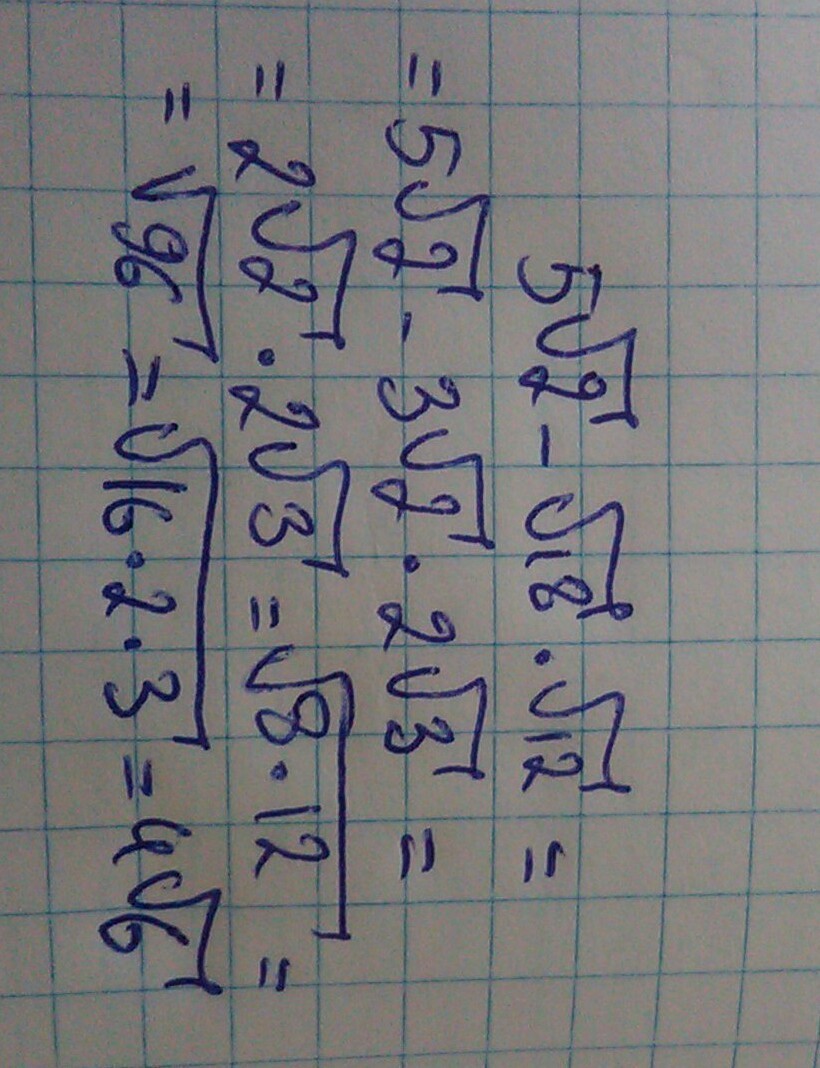 5√2 - √18 · √12 =
= 5√2 - 3√2 · 2√3 =
= 2√2 · 2√3 = √8·12 =
= √96 = √16·2·3 = 4√6